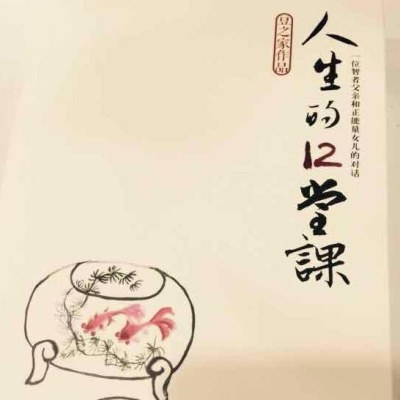 人生的12堂課
一位智者父亲和正能量女儿的对话
豆之家作品